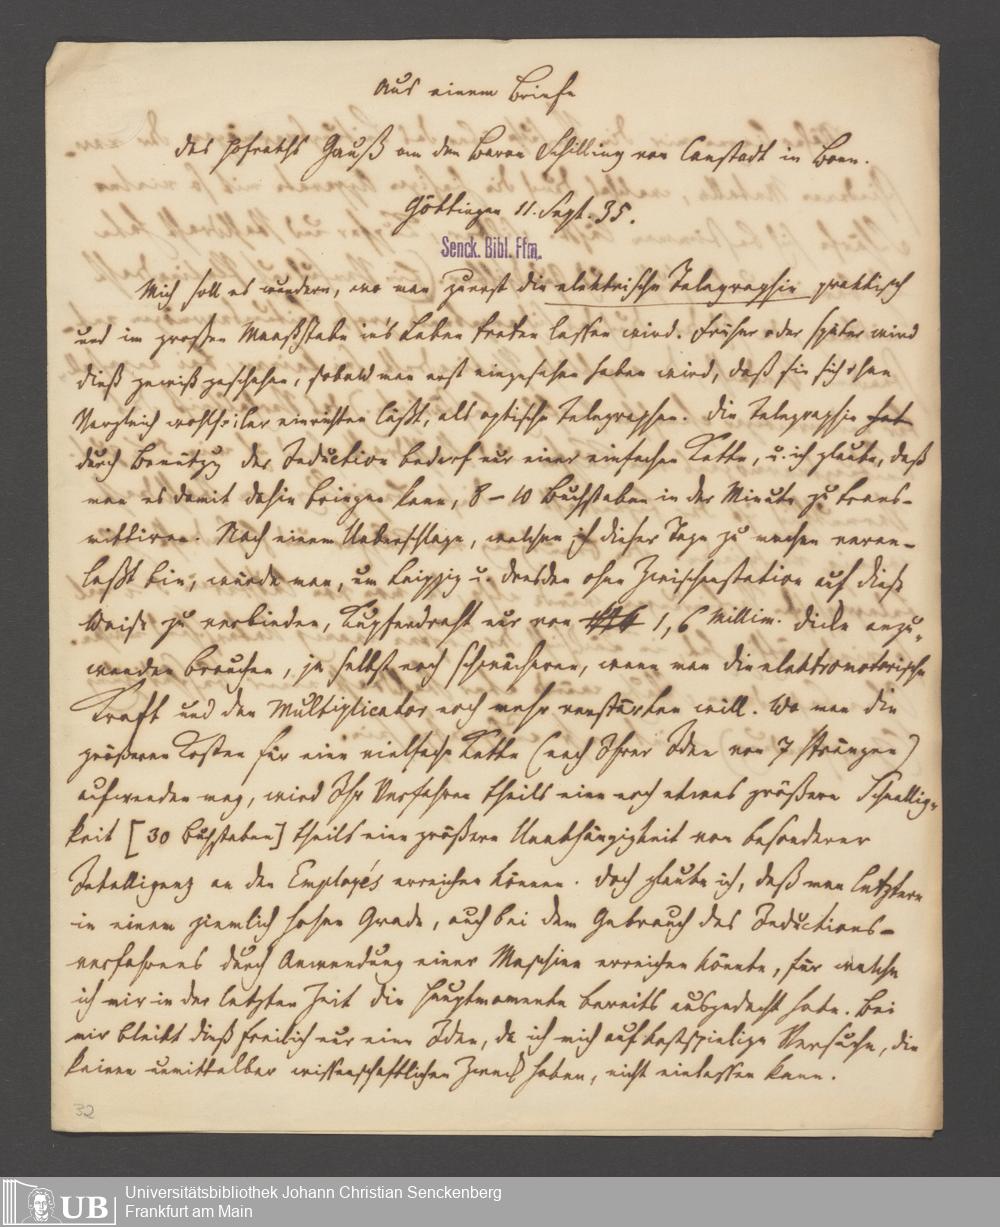 Aus einem Briefe
des Hofraths Gauß an den Baron Schilling von Canstadt in Bonn.
Göttingen 11. Sept. 35.
Senck. Bibl. Ffm.
Mich soll es wundern, wo man zuerst die elektrische Telegraphie praktisch
und im großen Maaßstabe in's Leben treten lassen wird. Früher oder später wird
dieß gewiß geschehen, sobald man erst eingesehen haben wird, daß sie sich ohne
Vergleich wohlfeiler einrichten läßt, als optische Telegraphen. Die Telegraphie hat
durch Benützug der Induction bedarf nur einer einfachen Kette, u. ich glaube, daß
man es damit dahin bringen kann, 8 – 10 Buchstaben in der Minute zu trans-
mittiren. Nach einem Ueberschlage, welchen ich dieser Tage zu machen veran-
laßt bin, würde man, um Leipzig u. Dresden ohne Zwischenstation auf diese
Weise zu verbinden, Kupferdraht nur von 1,6 Millim. Dicke anzu-
wenden brauchen, ja selbst noch schwächeren, wenn man die elektromotorische
Kraft und den Multiplicator noch mehr verstärken will. Wo man die
größeren Kosten für eine vielfache Kette (nach Ihrer Idee von 7 Strängen)
aufwenden mag, wird Ihr Verfahren theils eine noch etwas größere Schnellig-
keit [30 Buchstaben] theils eine größere Unabhängigkeit von besonderer
Intelligenz an den Employés erreichen können. Doch glaube ich, daß man letztere
in einem ziemlich hohen Grade, auch bei dem Gebrauch des Inductions-
verfahrens durch Anwendung einer Maschine erreichen könnte, für welche
ich mir in der letzten Zeit die Hauptmomente bereits ausgedacht habe. Bei
mir bleibt dieß freilich nur eine Idee, da ich mich auf kostspielige Versuche, die
keinen unmittelbar wissenschaftlichen Zweck haben, nicht einlassen kann.
32
UB
Universitätsbibliothek Johann Christian Senckenberg
Frankfurt am Main